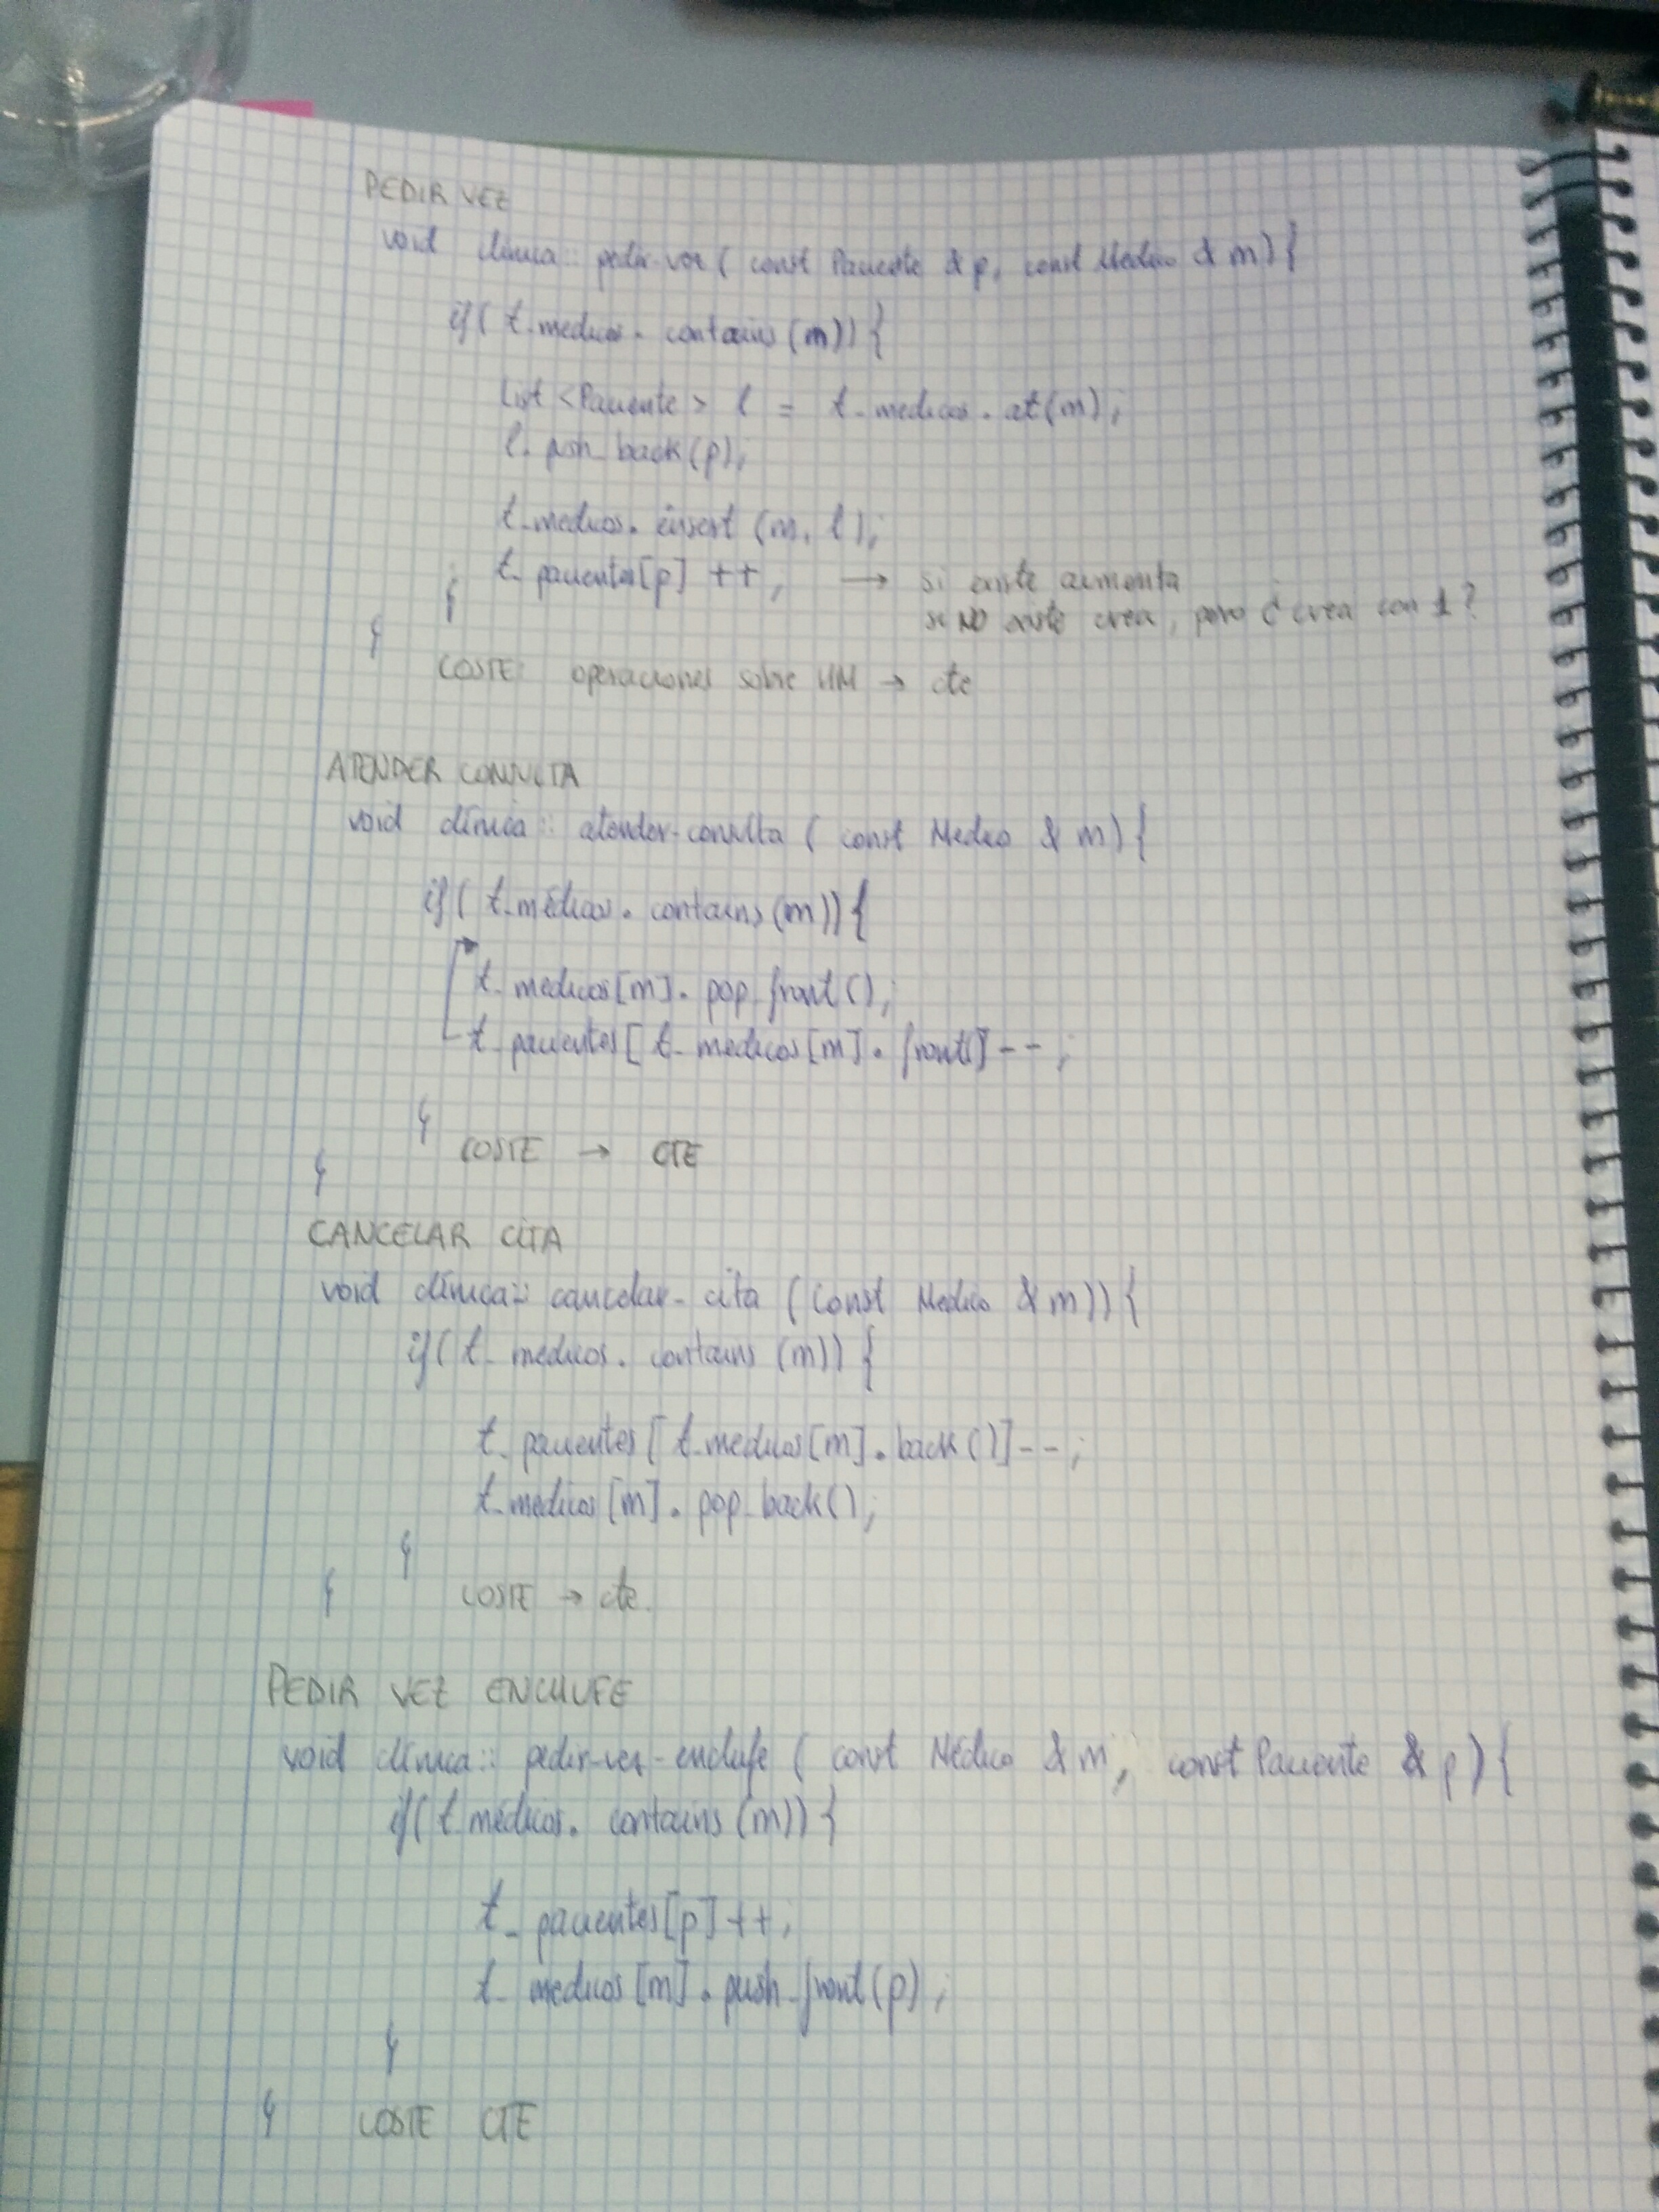 PEDIR VEZ
void clínica:: pedir-vez ( const Paciente & p, const Medico & m) {
if ( t-medicos. contains (m)) {
List <Paciente> l = t-medicos. at(m);
l. push_back(p);
t-medicos. insert (m, l);
t-pacientes[p] ++; → si existe aumenta
si NO existe crea, pero ¿ crea con 1?
}
}
COSTE: operaciones sobre HM → cte
ATENDER CONSULTA
void clínica:: atender-consulta ( const Medico & m) {
if ( t-médicos. contains (m)) {
t-medicos[m]. pop_front ();
t-pacientes[ t-medicos[m]. front()] --;
}
COSTE → CTE
}
CANCELAR CITA
void clínica:: cancelar-cita (const Medico & m)) {
if ( t-medicos. contains (m)) {
t-pacientes [ t-medicos[m]. back()] --;
t-medicos [m]. pop_back();
}
} COSTE → cte.
PEDIR VEZ ENCHUFE
void clínica:: pedir-vez-enchufe ( const Médico & m, const Paciente & p) {
if ( t-médicos. contains (m)) {
t-pacientes[p] ++;
t-medicos [m]. push_front (p);
}
} COSTE CTE